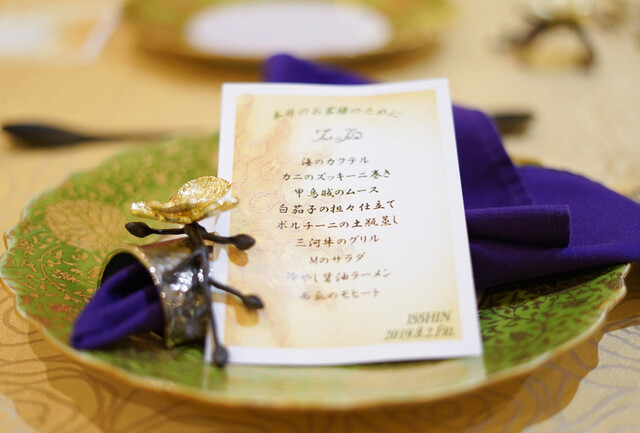 本日のお客様のために
海のカクテル
カニのズッキーニ巻き
甲烏賊のムース
白茄子の担々仕立て
ポルチーニの土瓶蒸し
三河牛のグリル
Mのサラダ
冷やし醤油ラーメン
のモヒート
ISSHIN
2019.8.2.Fri.